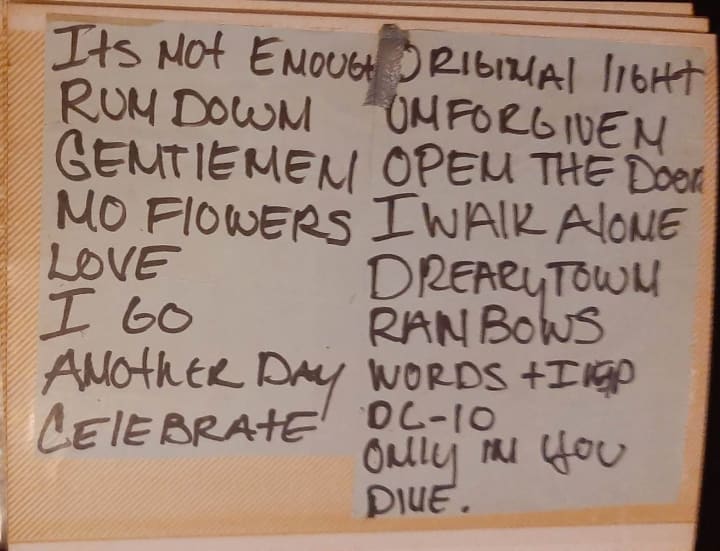 Its Not ENOUGH
RUN DOWN
GENTlEMEN
NO FlOWERS
LOVE
I GO
ANOthER DAY
CElEBRAtE
ORIGINAl lIGHt
UNFORGIVEN
OPEN THE DOOR
I WAlK AlONE
DREARYTOWN
RAINBOWS
WORDS +
DC-10
ONlY IN YOU
DIVE.